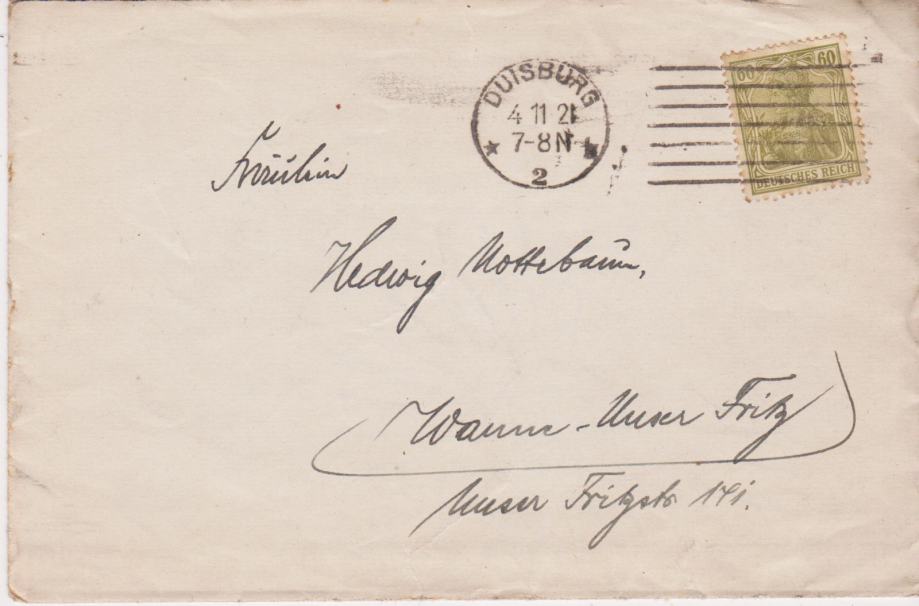 60 60
DEUTSCHES REICH
DUISBURG
4 11 21
7-8N
2
Fräulein
Hedwig Nottebaum,
Wanne-Unser Fritz
Unser Fritzstr